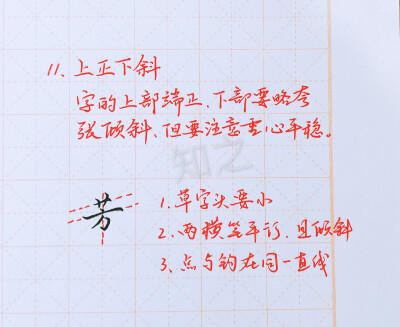 11、上正下斜
字的上部端正、下部要略夸
张倾斜,但要注意重心平稳。
知之
芳
1、草字头要小
2、两横笔平行、且倾斜
3、点与钩在同一直线